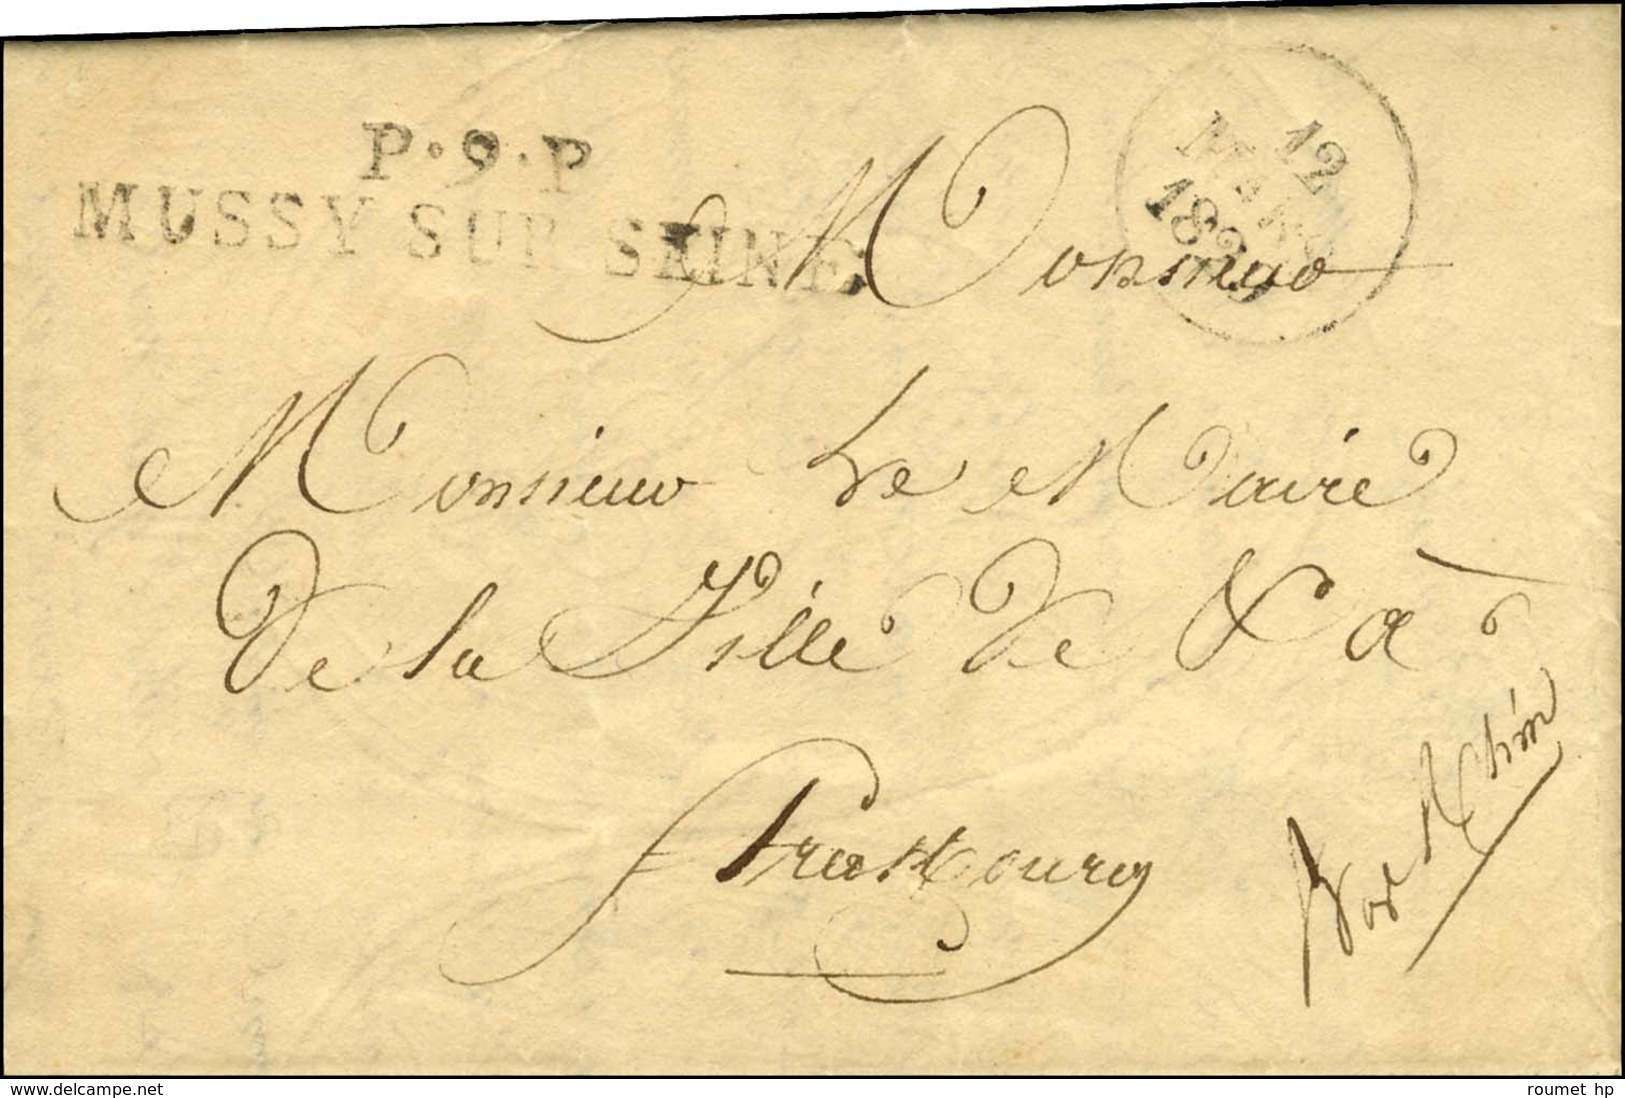 P.9.P
MUSSY SUR SEINE
12
MARS
Monsieur
Monsieur Le Maire
De la Ville De & à
Strasbourg
Bas Rhin
www.delcampe.net
roumet hp